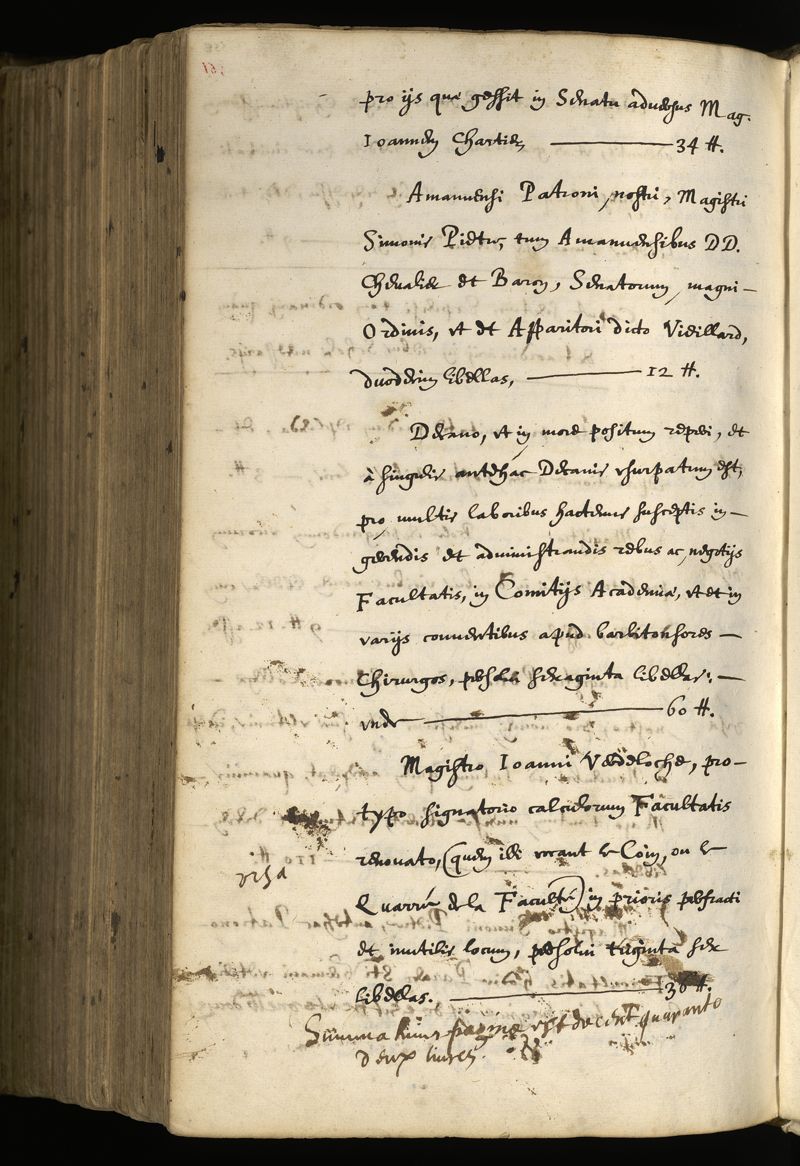 pro ijs quæ gessit in Senatu aduersus Mag.
Ioannem Chartier, 34 ₶.
Amanuensi Patroni nostri, Magistri
Simonis Pietre, tum Amanuensibus DD.
Chevalier et Baron, Senatorum magni-
Ordinis, ut et Apparitori dicto Vieillard,
duodecim libellas, 12 ₶.
Decano, ut in more positum reperi, et
à singulis antehac Decanis usurpatum est,
pro multis laboribus hactenus susceptis in-
gerendis et administrandis rebus ac negotijs
Facultatis, in Comitijs Academiæ, ut et in
varijs conuentibus apud barbitonsores
Chirurgos, persolui sexaginta libellas:
unde 60 ₶.
Magistro Ioanni Verdeloche, pro-
typo signatorio calculorum Facultatis
renouato, (quem illi vocant le Coin, ou le
Quarré de la Faculté) in prioris perfracti
et inutilis locum, persolui triginta sex
libellas. 36 ₶.
visa
Summa huius paginæ est de cent quarante
deux liures.